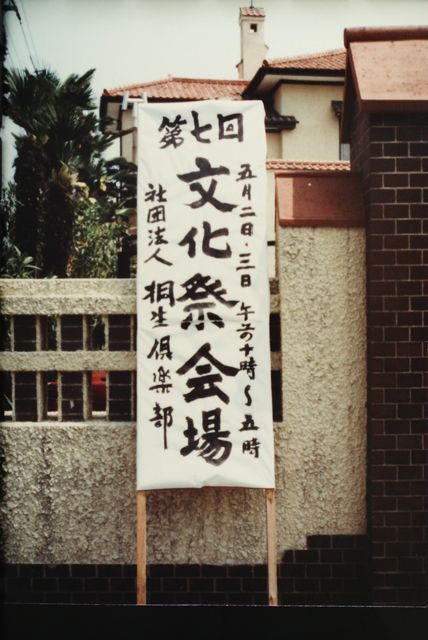 第七回
五月二日・三日 午前十時〜五時
文化祭会場
社団法人 桐生倶楽部